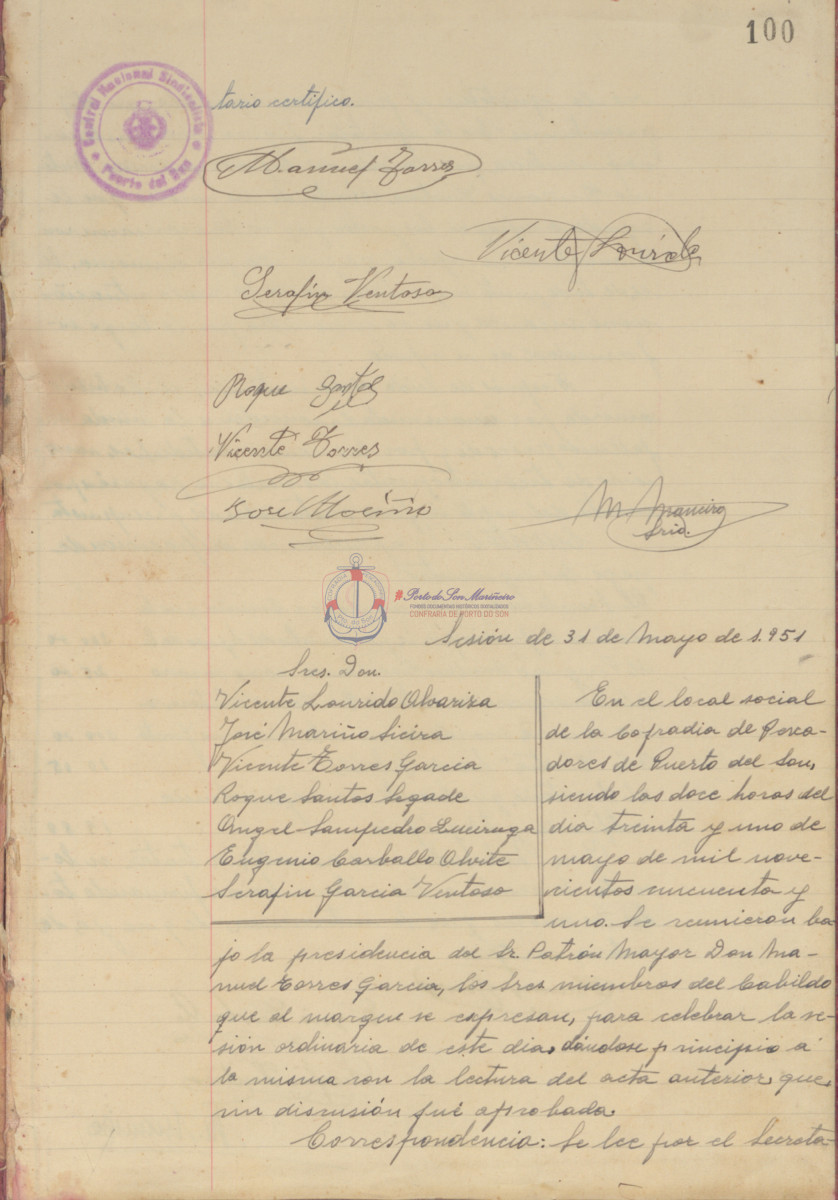 100
Central Nacional Sindicalista
Puerto del Son
tario certifico.
Manuel Torres
Vicente Lourido
Serafín Ventoso
Roque Santos
Vicente Torres
José Mariño
M. Maneiro
Srio.
COFRADIA PESCADORES
Pto. do Son
#Porto do Son Mariñeiro
FONDOS DOCUMENTAIS HISTÓRICOS DIXITALIZADOS
CONFRARIA DE PORTO DO SON
Sesión de 31 de Mayo de 1.951
Sres. Don.
Vicente Lourido Alvariza
José Mariño Sieira
Vicente Torres Garcia
Roque Santos Segade
Angel Sampedro
Eugenio Carballo Olvite
Serafin Garcia Ventoso
En el local social
de la Cofradia de Pesca-
dores de Puerto del Son,
siendo las doce horas del
dia treinta y uno de
mayo de mil nove-
cientos cincuenta y
uno. Se reunieron ba-
jo la presidencia del Sr. Patrón Mayor Don Ma-
nuel Torres Garcia, los Sres miembros del Cabildo
que al margue se expresan, para celebrar la se-
sión ordinaria de este dia, dándose principio á
la misma con la lectura del acta anterior, que,
sin discusión fué aprobada.
Correspondencia: Se lee por el Secreta-